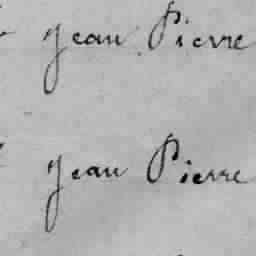 Jean Pierre
Jean Pierre